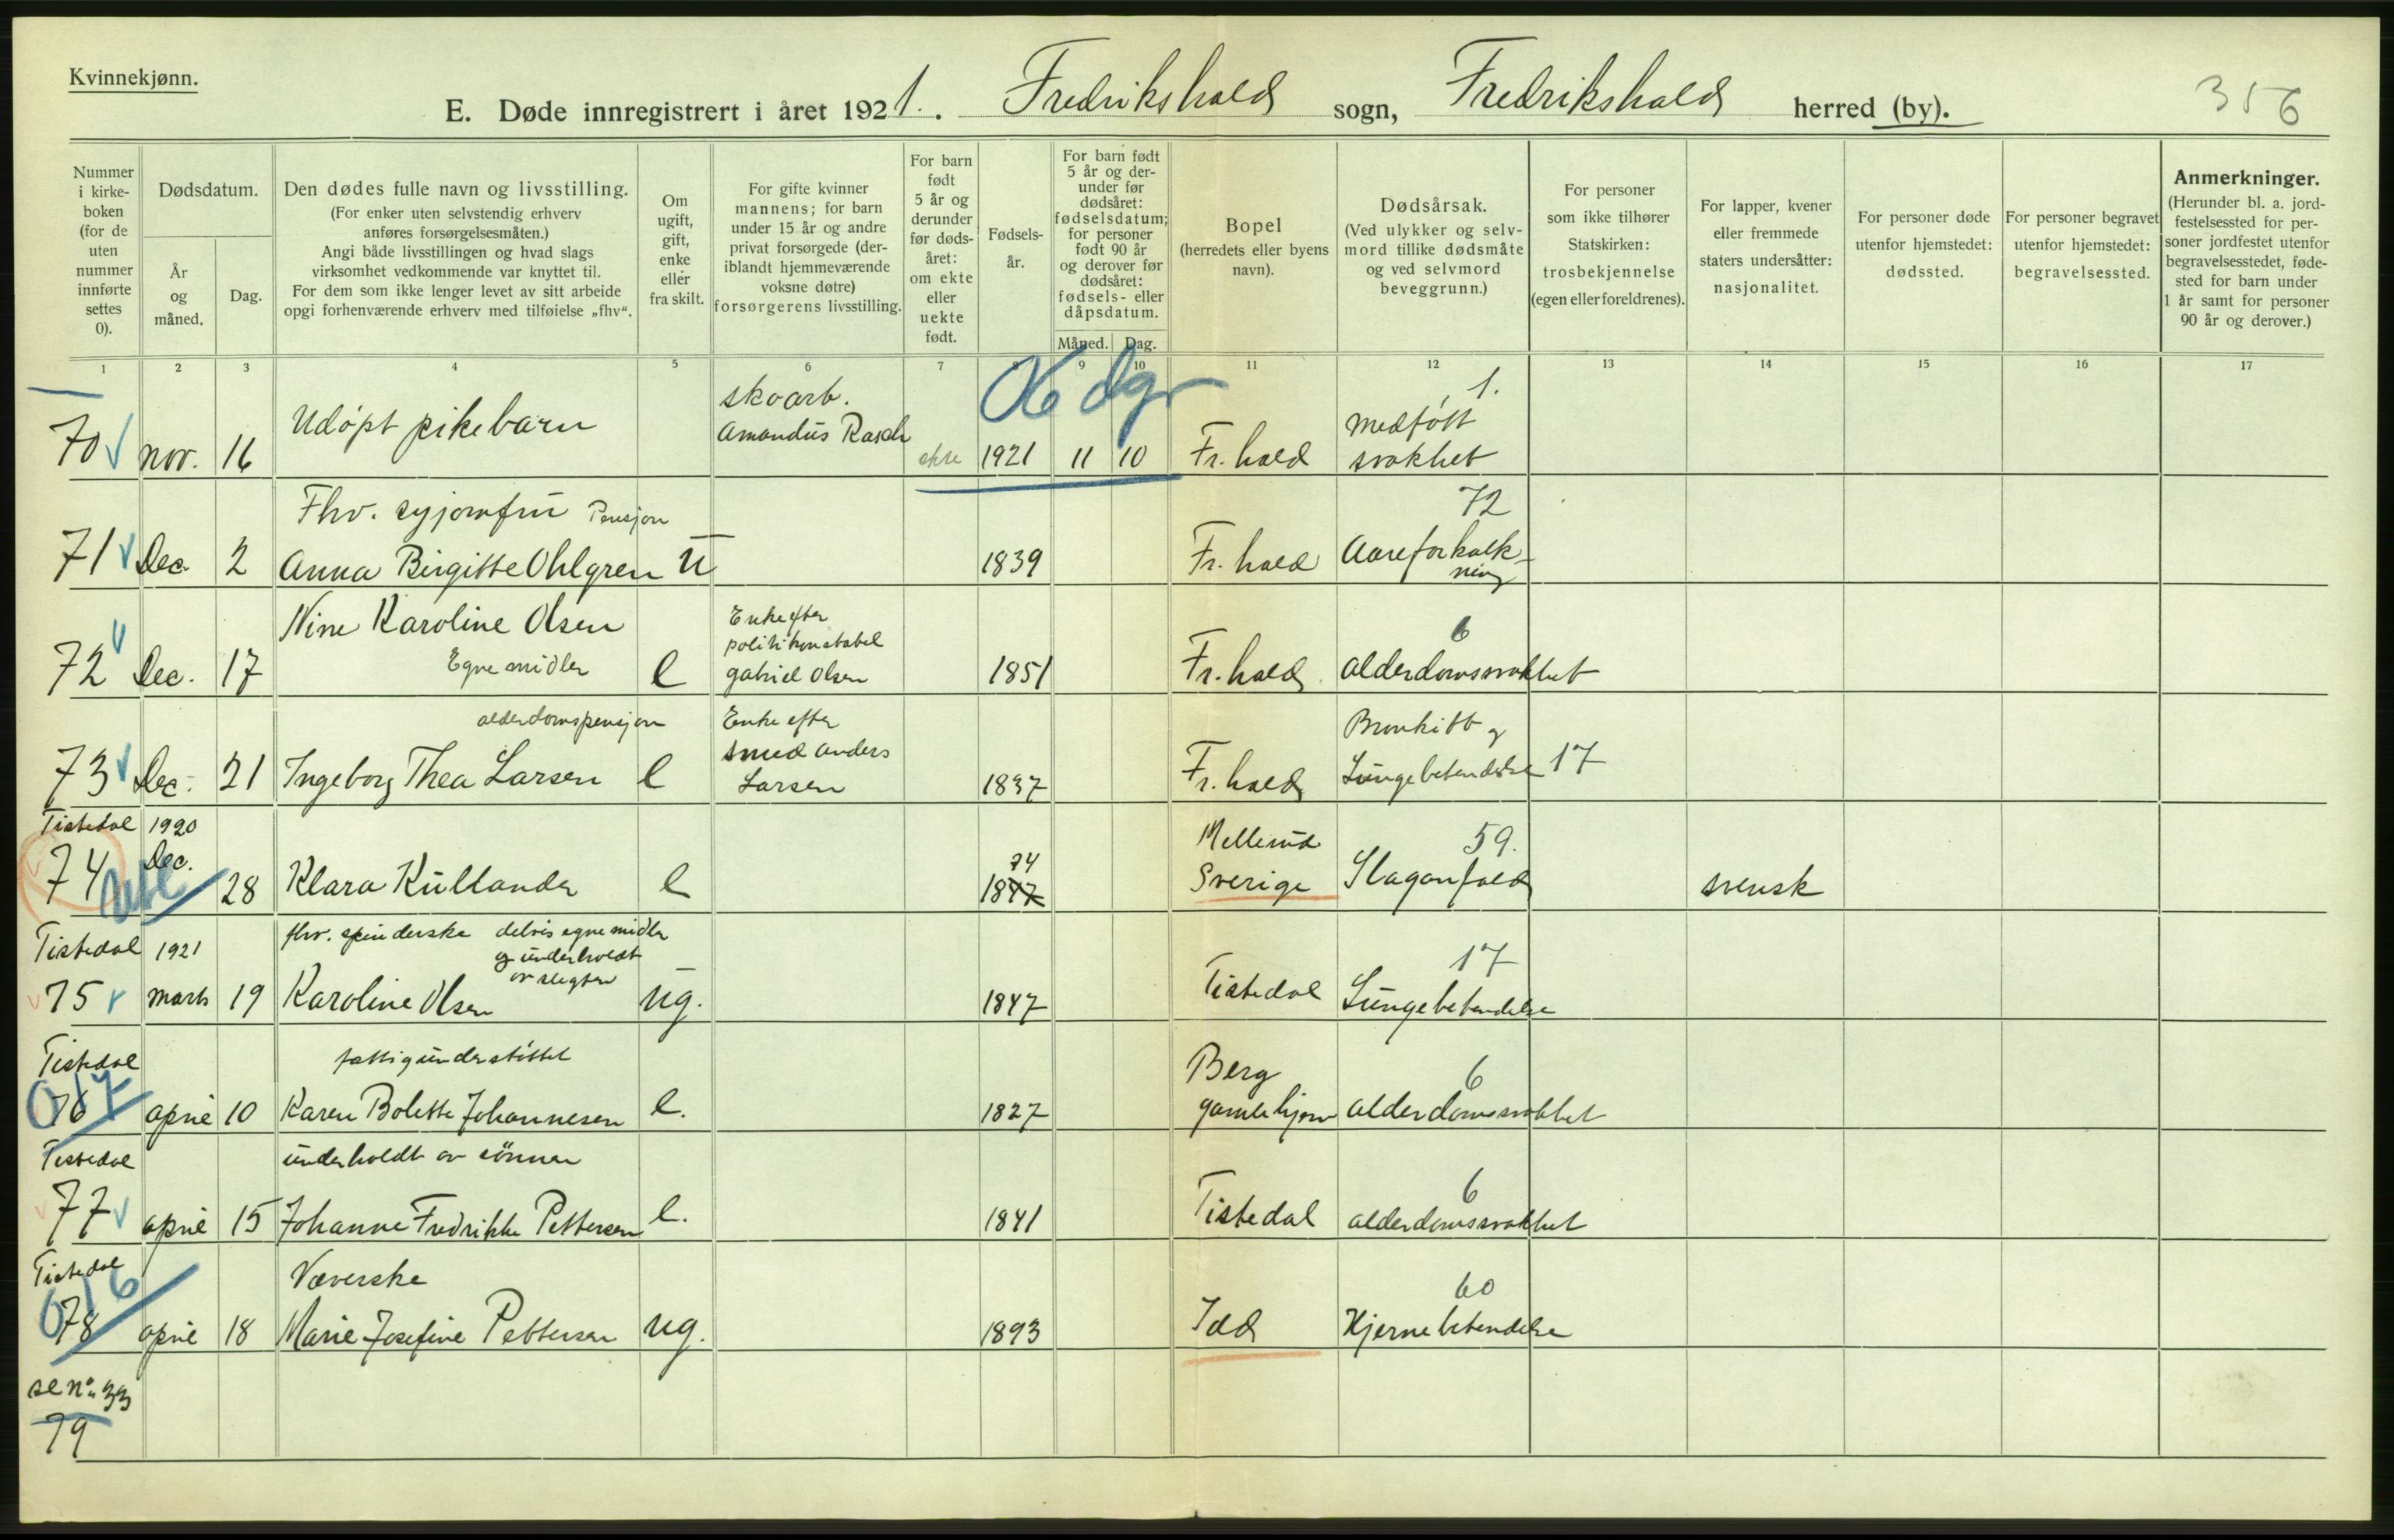 Kvinnekjønn.
E. Døde innregistrert i året 1921. Fredrikshald sogn, Fredrikshald herred (by).
356
Nummer i kirke-boken (for de uten nummer innførte settes 0).
Dødsdatum.
År og måned.
Dag.
Den dødes fulle navn og livsstilling.
(For enker uten selvstendig erhverv anføres forsørgelsesmåten.)
Angi både livsstillingen og hvad slags virksomhet vedkommende var knyttet til.
For dem som ikke lenger levet av sitt arbeide opgi forhenværende erhverv med tilføielse „fhv“.
Om ugift, gift, enke eller fra skilt.
For gifte kvinner mannens; for barn under 15 år og andre privat forsørgede (der-iblandt hjemmeværende voksne døtre) forsørgerens livsstilling.
For barn født 5 år og derunder før døds-året: om ekte eller uekte født.
Fødsels-år.
For barn født 5 år og der-under før dødsåret: fødselsdatum; for personer født 90 år og derover før dødsåret: fødsels- eller dåpsdatum.
Måned. Dag.
Bopel (herredets eller byens navn).
Dødsårsak. (Ved ulykker og selv-mord tillike dødsmåte og ved selvmord beveggrunn.)
For personer som ikke tilhører Statskirken: trosbekjennelse (egen eller foreldrenes).
For lapper, kvener eller fremmede staters undersåtter: nasjonalitet.
For personer døde utenfor hjemstedet: dødssted.
For personer begravet utenfor hjemstedet: begravelsessted.
Anmerkninger. (Herunder bl. a. jord-festelsessted for per-soner jordfestet utenfor begravelsesstedet, føde-sted for barn under 1 år samt for personer 90 år og derover.)
1 2 3 4 5 6 7 8 9 10 11 12 13 14 15 16 17
06 dgr
skoarb. 1.
Udøpt pikebarn Amandus Rasch Medfött
70 nov. 16 ekte 1921 11 10 Fr. hald svakhet
Fhv. syjomfru Pensjon 72
71 Dec. 2 Anna Birgitte Ohlgren U 1839 Fr. hald Aareforkalk-
ning
Nine Karoline Olsen Enke efter 6
politikonstabel
72 Dec. 17 Egne midler e gabriel Olsen 1851 Fr. hald alderdomssvakhet
alderdomspensjon Enke efter Bronkitt og
smed Anders
73 Dec. 21 Ingeborg Thea Larsen e Larsen 1837 Fr. hald Lungebetendelse 17
Tistedal 1920 Mellerud 59.
Dec. 74
74 28 Klara Kullander e 1847 Sverige Slaganfald svensk
Tistedal 1921 fhv. spinderske delvis egne midler
og underholdt 17
av slegten
75 marts 19 Karoline Olsen ug. 1847 Tistedal Lungebetendelse
Tistedal fattigunderstöttet Berg 6
017
76 april 10 Karen Bolette Johannesen e. 1827 gamlehjem alderdomssvakhet
Tistedal underholdt av sönner 6
77 april 15 Johanne Fredrikke Pettersen e. 1841 Tistedal alderdomssvakhet
Tistedal Væverske 60
016
78 april 18 Marie Josefine Pettersen ug. 1893 Idd Hjernebetendelse
se No 33
79